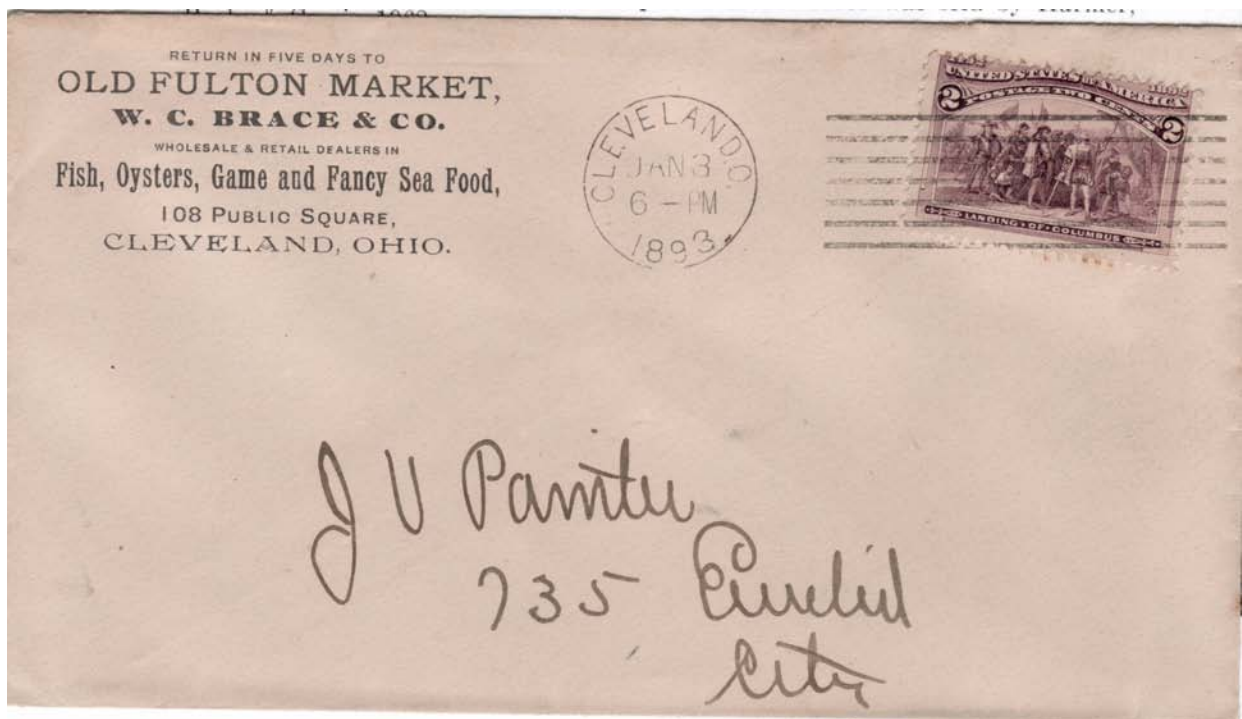 RETURN IN FIVE DAYS TO
OLD FULTON MARKET,
W. C. BRACE & CO.
WHOLESALE & RETAIL DEALERS IN
Fish, Oysters, Game and Fancy Sea Food,
108 PUBLIC SQUARE,
CLEVELAND, OHIO.
CLEVELAND, O.
JAN 3
6 - PM
1893.
1492 1892
UNITED STATES OF AMERICA
POSTAGE TWO CENTS
2 2
LANDING OF COLUMBUS
J V Painter
735 Euclid
City